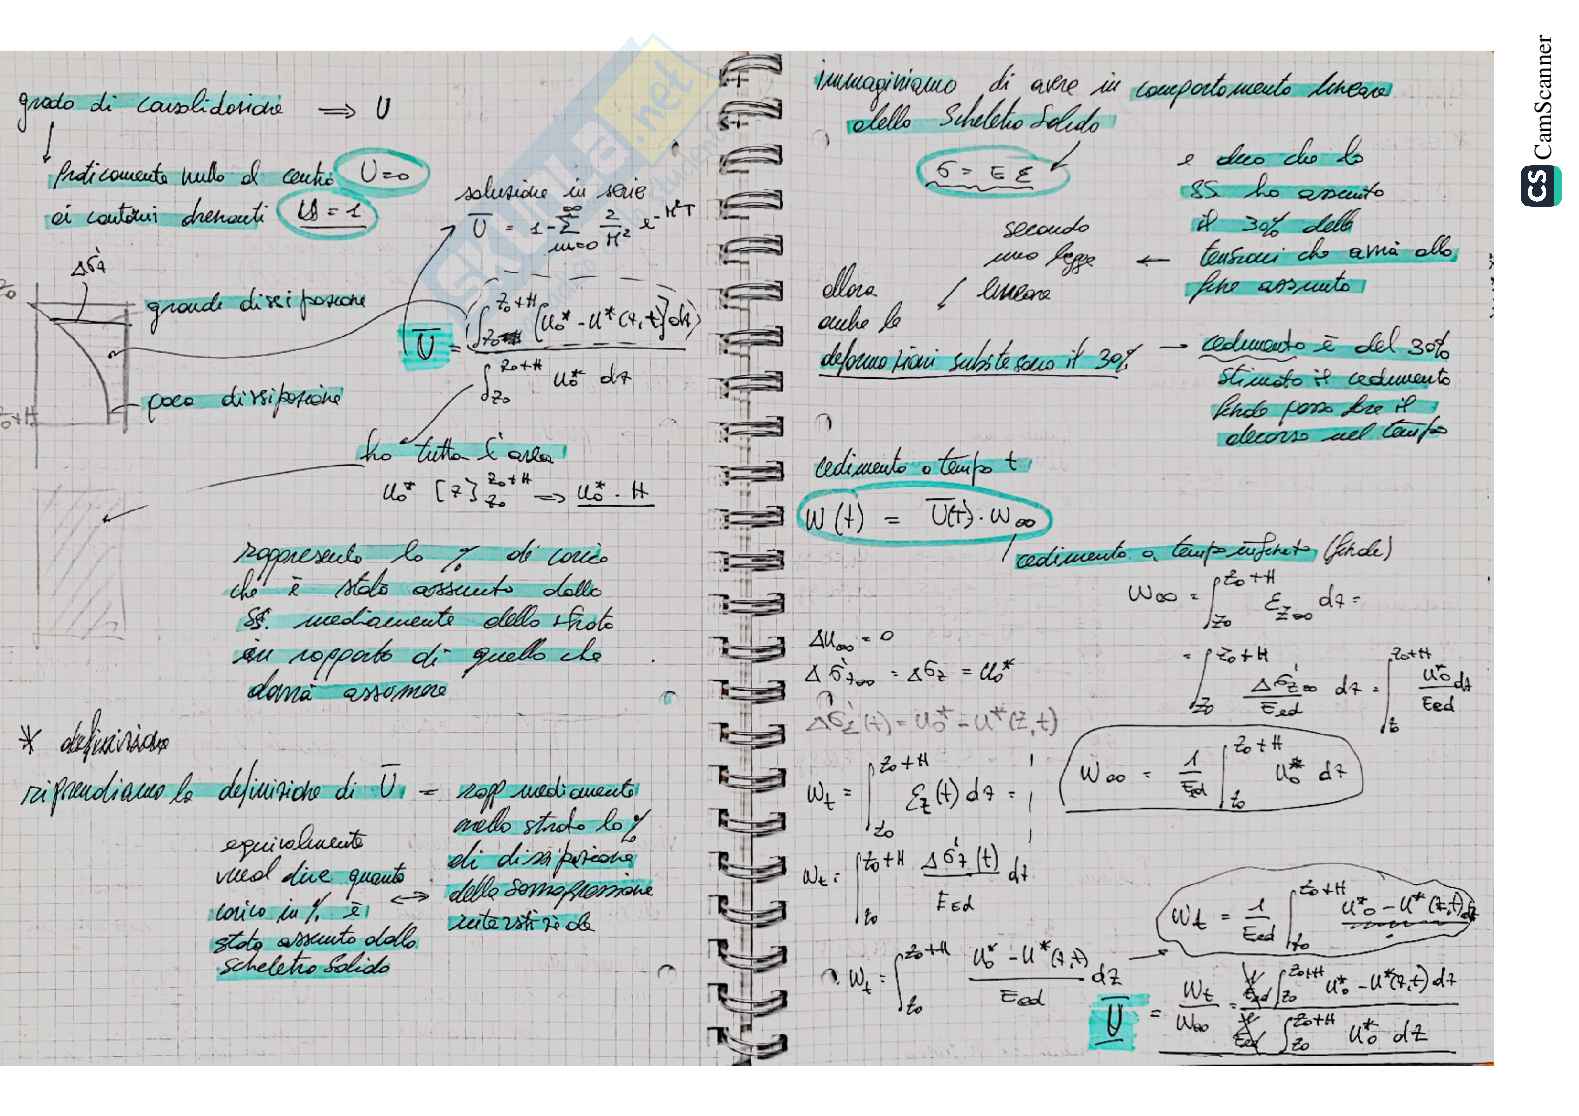 grado di consolidazione ⟹ U
Praticamente nullo al centro U=0
ai contorni drenanti U=1
soluzione in serie
Ū = 1 - ∑_{m=0}^{∞} 2/M² e^{-M²T}
Δσ'z
grande dissipazione
Ū = ∫_{z₀}^{z₀+H} [u₀* - u*(z,t)] dz / ∫_{z₀}^{z₀+H} u₀* dz
poca dissipazione
z₀+H
ho tutta l'area
u₀* [z]_{z₀}^{z₀+H} ⟹ u₀* · H
rappresenta la % di carico
che è stata assunta dallo
SS. mediamente dello strato
in rapporto di quello che
dovrà assumere
* definizione
riprendiamo la definizione di Ū = rapp mediamente
nello strato la %
di dissipazione
della sovrapressione
interstiziale
equivalmente
vuol dire quanto ⟷
carico in % è
stato assunto dallo
scheletro solido
immaginiamo di avere un comportamento lineare
dello Scheletro Solido
σ = E ε
e dico che lo
SS ha assunto
il 30% delle
tensioni che avrà alla
fine assunto
secondo
una legge ←
lineare
allora
anche le
deformazioni subite sono il 30% → cedimento è del 30%
stimato il cedimento
finale posso fare il
decorso nel tempo
cedimento a tempo t
W(t) = Ū(T) · W∞
cedimento a tempo infinito (finale)
W∞ = ∫_{z₀}^{z₀+H} ε_{z∞} dz =
= ∫_{z₀}^{z₀+H} Δσ'_{z∞}/Eed dz = ∫_{z₀}^{z₀+H} u₀*/Eed dz
Δu∞ = 0
Δσ'_{z∞} = Δσz = u₀*
Δσ'z(t) = u₀* - u*(z,t)
W∞ = 1/Eed ∫_{z₀}^{z₀+H} u₀* dz
Wt = ∫_{z₀}^{z₀+H} εz(t) dz =
Wt = ∫_{z₀}^{z₀+H} Δσ'z(t)/Eed dz
Wt = ∫_{z₀}^{z₀+H} u₀* - u*(z,t)/Eed dz →
Wt = 1/Eed ∫_{z₀}^{z₀+H} u₀* - u*(z,t) dz
Ū = Wt/W∞ = 1/Eed ∫_{z₀}^{z₀+H} u₀* - u*(z,t) dz / 1/Eed ∫_{z₀}^{z₀+H} u₀* dz
SKUOLA.net
CS CamScanner